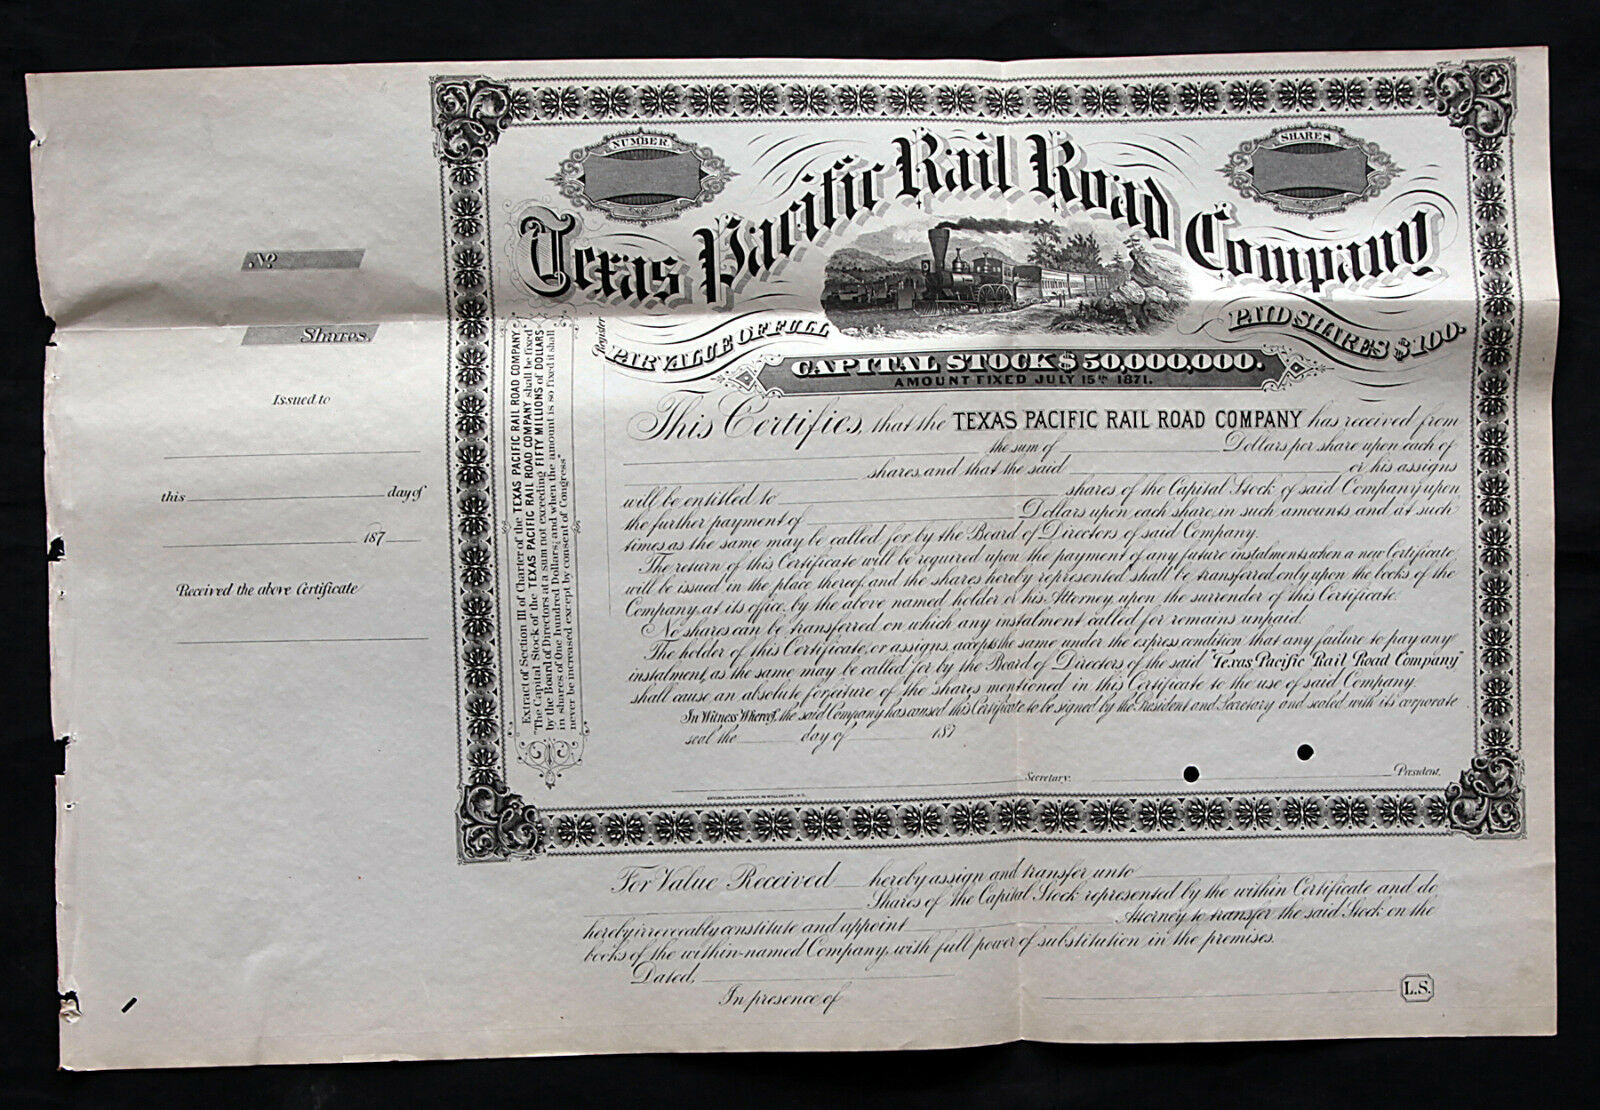 No.
Shares.
Issued to
this day of
187
Received the above Certificate
NUMBER.
SHARES
Texas Pacific Rail Road Company
PAR VALUE OF FULL PAID SHARES $100.
CAPITAL STOCK $50,000,000.
AMOUNT FIXED JULY 15th 1871.
Register
Extract of Section III of Charter of the TEXAS PACIFIC RAIL ROAD COMPANY.
"The Capital Stock of the TEXAS PACIFIC RAIL ROAD COMPANY shall be fixed
by the Board of Directors at a sum not exceeding FIFTY MILLIONS of DOLLARS
in shares of One hundred Dollars; and when the amount is so fixed it shall
never be increased except by consent of Congress"
This Certifies, that the TEXAS PACIFIC RAIL ROAD COMPANY has received from
the sum of Dollars per share upon each of
shares, and that the said or his assigns
will be entitled to shares of the Capital Stock of said Company upon
the further payment of Dollars upon each share, in such amounts and at such
times as the same may be called for by the Board of Directors of said Company.
The return of this Certificate will be required upon the payment of any future instalments when a new Certificate
will be issued in the place thereof, and the shares hereby represented shall be transferred only upon the books of the
Company, at its office, by the above named holder or his Attorney, upon the surrender of this Certificate.
No shares can be transferred on which any instalment called for remains unpaid.
The holder of this Certificate, or assigns, accepts the same under the express condition that any failure to pay any
instalment, as the same may be called for by the Board of Directors of the said "Texas Pacific Rail Road Company"
shall cause an absolute forfeiture of the shares mentioned in this Certificate to the use of said Company.
In Witness Whereof, the said Company has caused this Certificate to be signed by the President and Secretary and sealed with its corporate
seal the day of 187
Secretary. President.
For Value Received hereby assign and transfer unto
Shares of the Capital Stock represented by the within Certificate and do
hereby irrevocably constitute and appoint Attorney to transfer the said Stock on the
books of the within-named Company, with full power of substitution in the premises.
Dated,
In presence of
L.S.